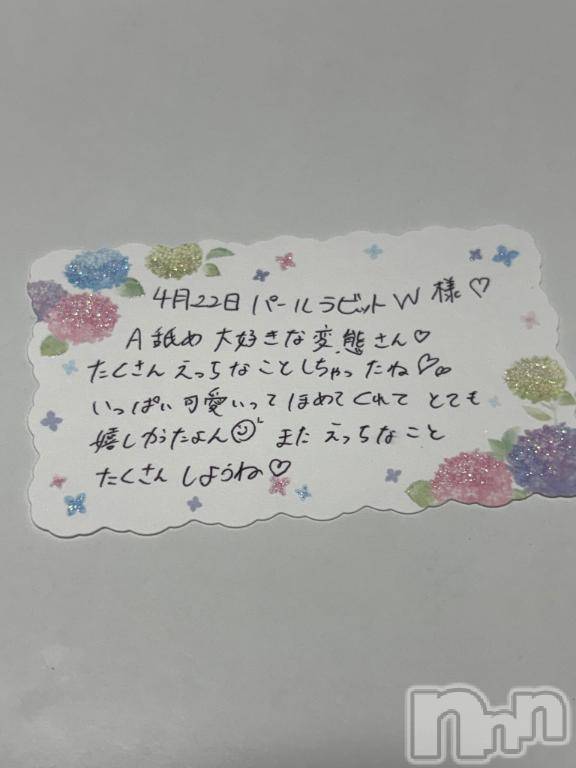 4月22日 パールラビットW 様♡
A舐め 大好きな変態さん♡
たくさん えっちなことしちゃったね♡∞
いっぱい 可愛いって ほめてくれて とても
嬉しかったよん☺ また えっちなこと
たくさん しようね♡
nnn